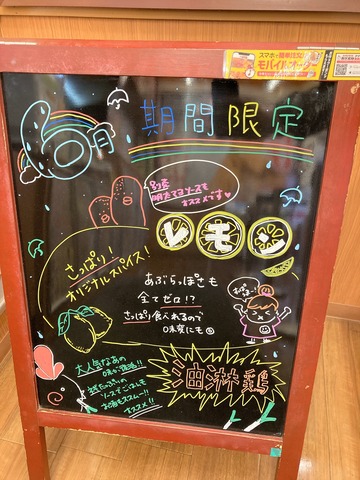 スマホで簡単注文
モバイルオーダー
6月
期間限定
別添
明太マヨソースも
オススメです
レモン
さっぱり！
オリジナルスパイス！
あぶらっぽさも
全てゼロ！？
さっぱり食べれるので
味変にも
大人気なあの
味が復活！！
ソースでごはんも
お酒もススム〜！！
オススメ！！
油淋鶏